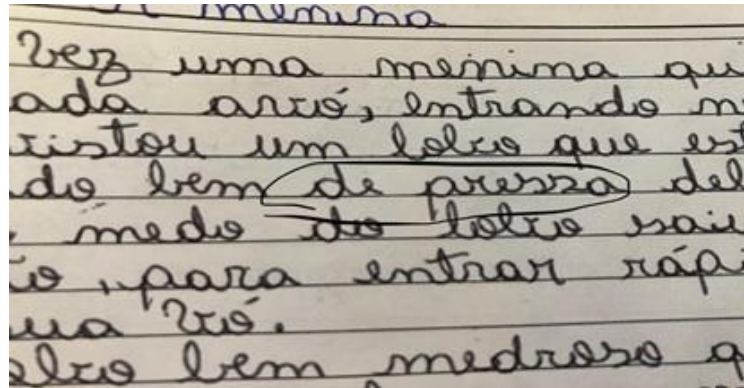 A menina
Vez uma menina qui
ada avó, entrando n
vistou um lobo que est
do bem de pressa del
medo do lobo sai
o, para entrar rápi
ua vó.
lobo bem medroso q